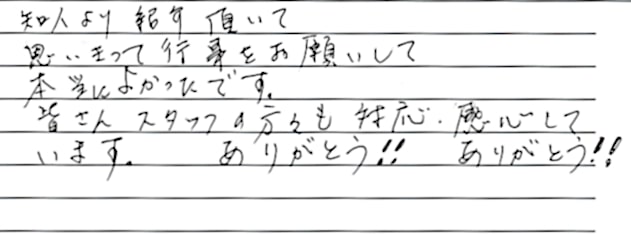 知人より紹介頂いて
思いきって行事をお願いして
本当によかったです。
皆さんスタッフの方々も対応・感心して
います。 ありがとう!! ありがとう!!